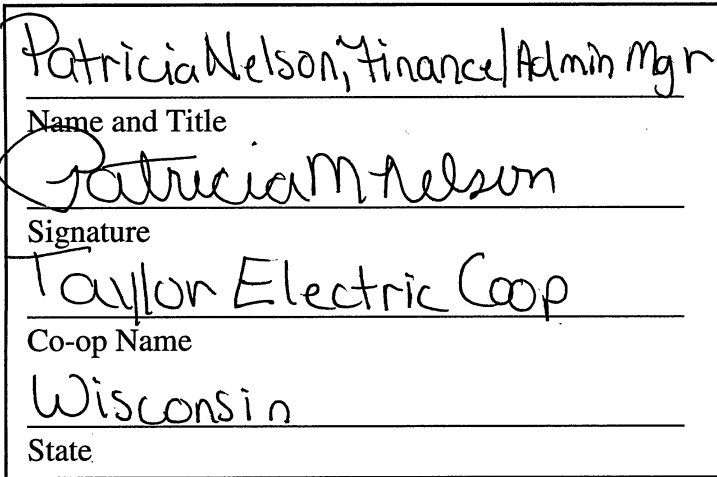 Patricia Nelson, Finance/Admin Mgr
Name and Title
Patricia M Nelson
Signature
Taylor Electric Coop
Co-op Name
Wisconsin
State